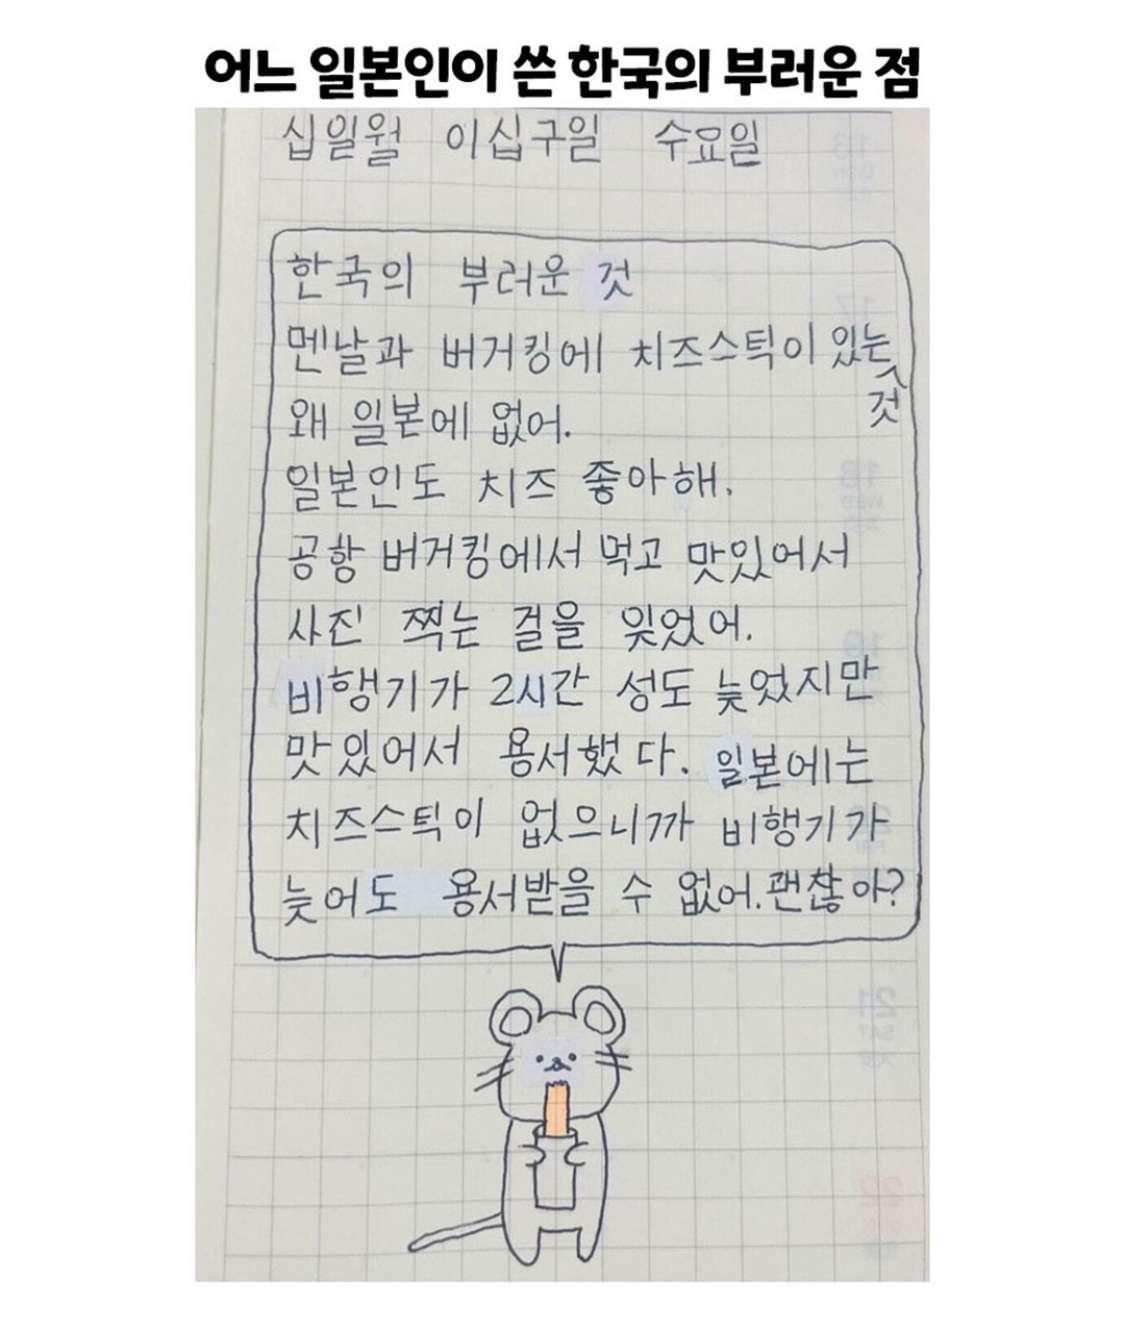 어느 일본인이 쓴 한국의 부러운 점
십일월 이십구일 수요일
한국의 부러운 것
멘날과 버거킹에 치즈스틱이 있는 것
왜 일본에 없어.
일본인도 치즈 좋아해.
공항 버거킹에서 먹고 맛있어서
사진 찍는 걸을 잊었어.
비행기가 2시간 성도 늦었지만
맛있어서 용서했다. 일본에는
치즈스틱이 없으니까 비행기가
늦어도 용서받을 수 없어. 괜찮아?